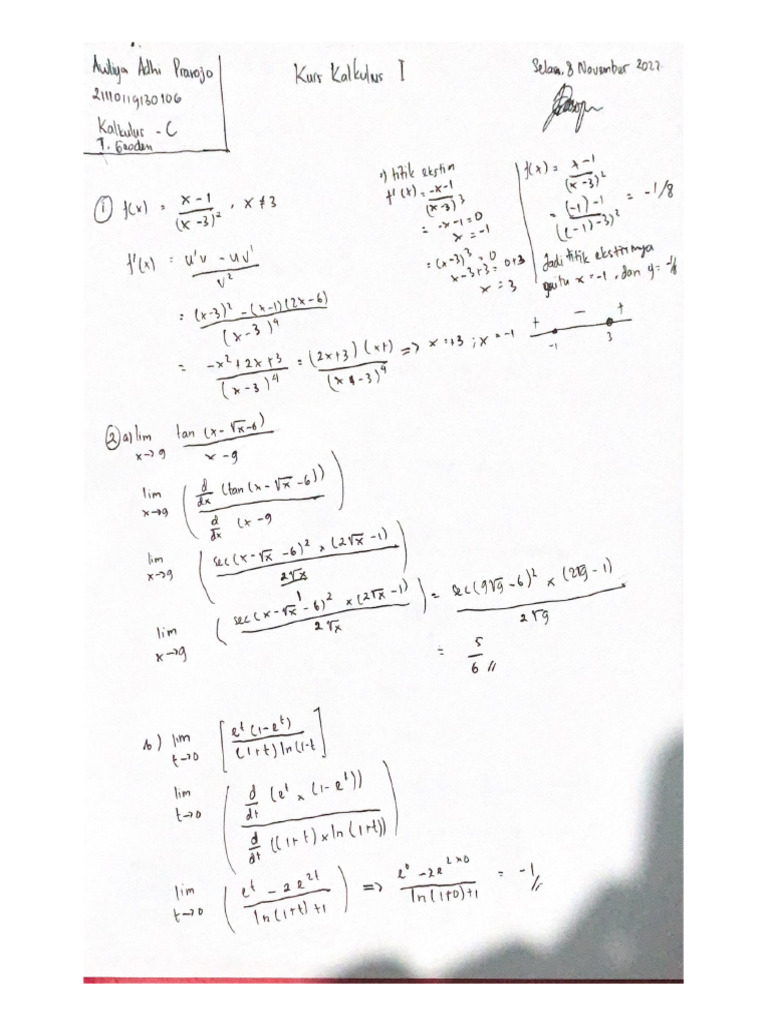 Auliya Adhi Prarojo
21110119130106
Kalkulus - C
T. Geodesi
Kuis Kalkulus I
Selasa, 8 November 2022
① f(x) = (x-1)/(x-3)², x ≠ 3
f'(x) = (u'v - uv')/v²
= ((x-3)² - (x-1)(2x-6))/(x-3)⁴
= (-x²+2x+3)/(x-3)⁴ = (2x+3)(x+1)/(x-3)⁴ => x = +3 ; x = -1
•) titik ekstim
f'(x) = (-x-1)/(x-3)³
= -x-1=0
x = -1
= (x-3)³ = 0
x-3+3 = 0+3
x = 3
f(x) = (x-1)/(x-3)²
= ((-1)-1)/((-1)-3)² = -1/8
Jadi titik ekstrimnya
yaitu x = -1, dan y = -1/8
+ - +
-1 3
② a) lim x→9 tan(x-√x-6)/(x-9)
lim x→9 (d/dx (tan(x-√x-6))/(d/dx (x-9))
lim x→9 (sec(x-√x-6)² × (2√x-1)/2√x/1)
lim x→9 (sec(x-√x-6)² × (2√x-1)/2√x) = sec(9√9-6)² × (2√9-1)/2√9
= 5/6 //
b) lim t→0 [e^t(1-e^t)/(1+t)ln(1-t]
lim t→0 (d/dt (e^t × (1-e^t))/d/dt ((1+t)×ln(1+t)))
lim t→0 (e^t - 2e^2t/ln(1+t)+1) => e⁰ - 2e^2×0/ln(1+0)+1 = -1 //